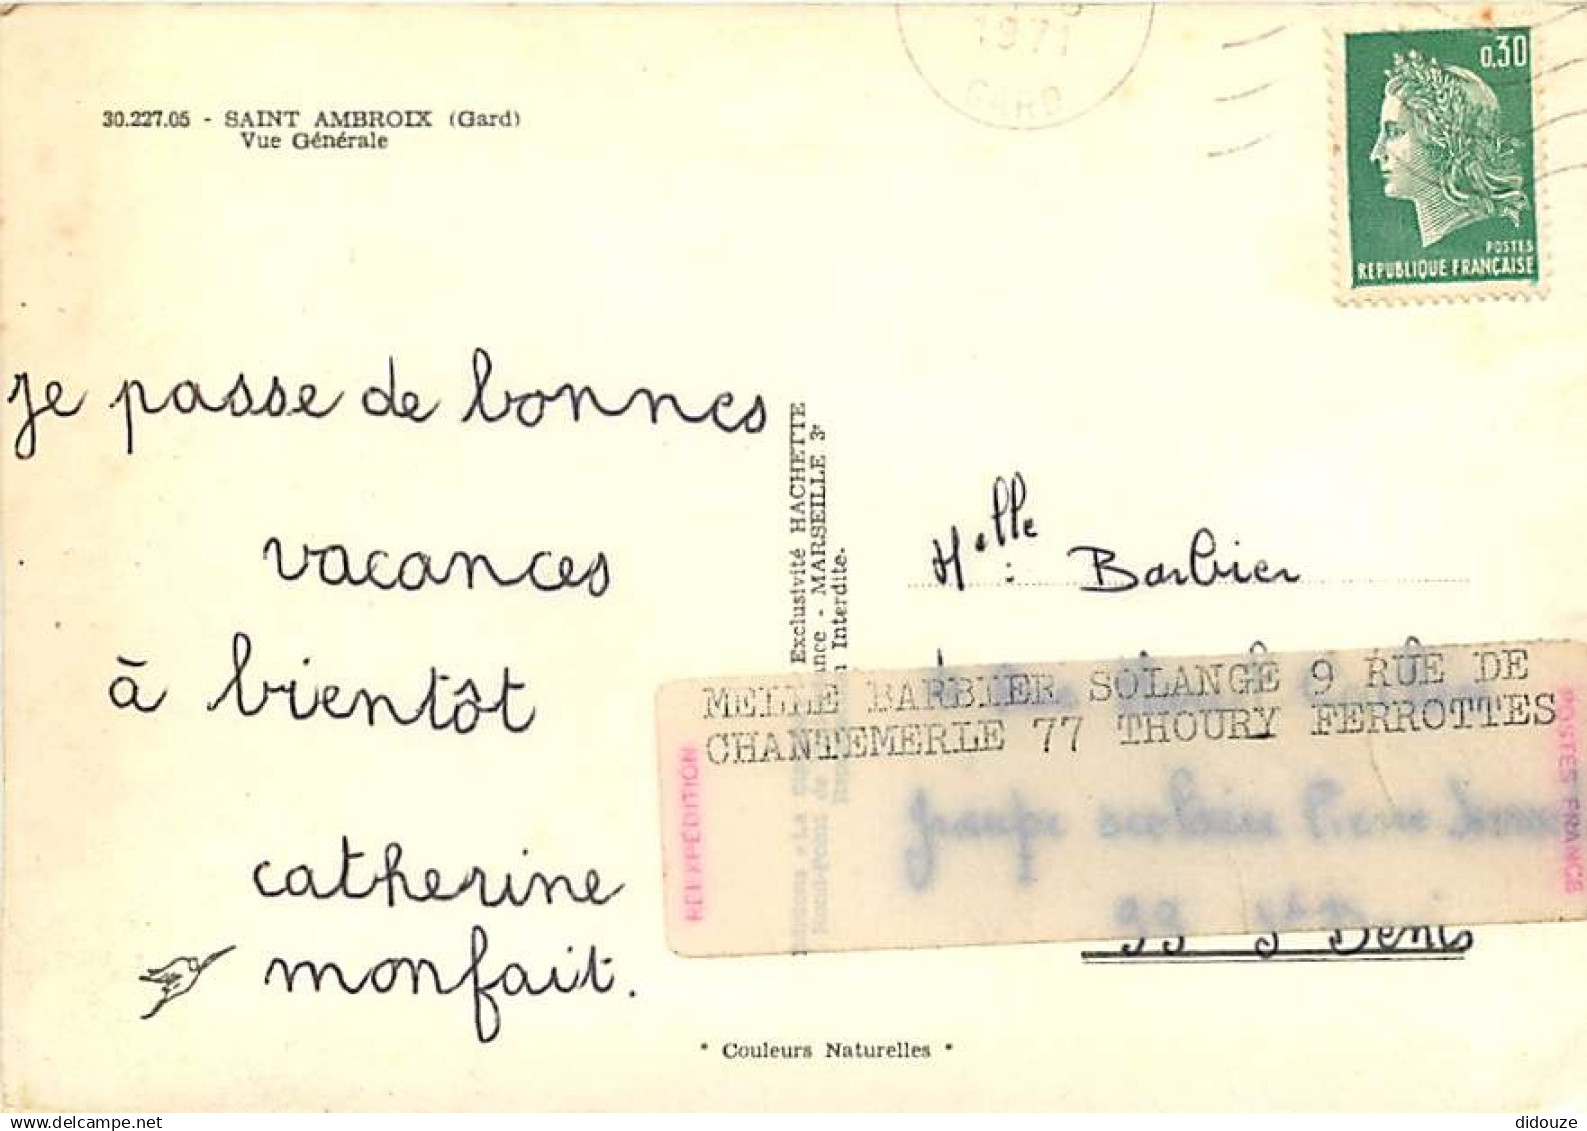 1971
GARD
0.30
POSTES
REPUBLIQUE FRANÇAISE
30.227.05 - SAINT AMBROIX (Gard)
Vue Générale
je passe de bonnes
vacances
à bientôt
catherine
monfait.
Exclusivité HACHETTE
- MARSEILLE 3e
Interdite.
Melle : Barbier
MELLE BARBIER SOLANGE 9 RUE DE
CHANTEMERLE 77 THOURY FERROTTES
REEXPÉDITION
POSTES FRANCE
groupe scolaire Pierre
93 St Denis
* Couleurs Naturelles *
didouze